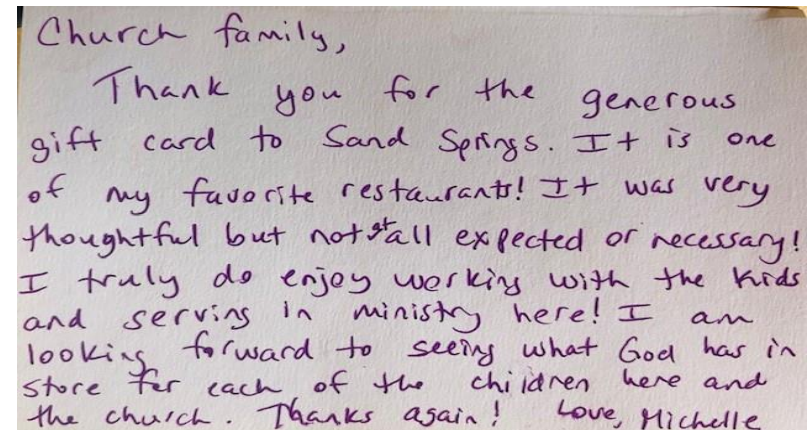 Church family,
Thank you for the generous
gift card to Sand Springs. It is one
of my favorite restaurants! It was very
thoughtful but not at all expected or necessary!
I truly do enjoy working with the kids
and serving in ministry here! I am
looking forward to seeing what God has in
store for each of the children here and
the church. Thanks again! Love, Michelle